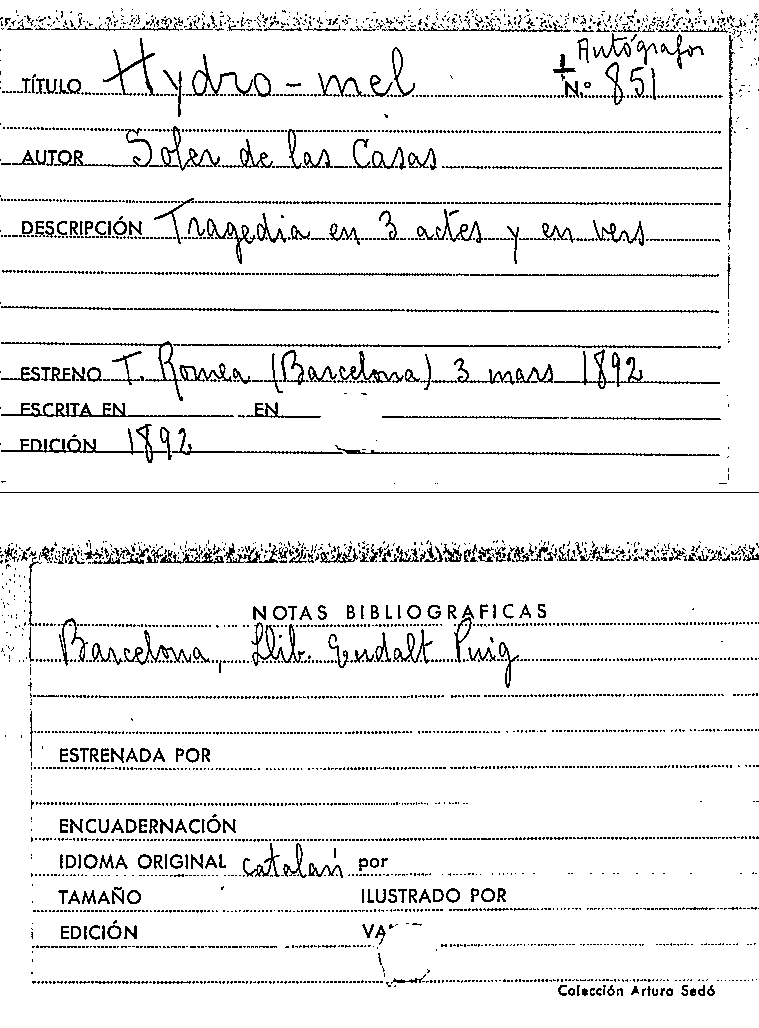 Autógrafos
TÍTULO Hydro-mel N.º 851
AUTOR Soler de las Casas
DESCRIPCIÓN Tragedia en 3 actes y en vers
ESTRENO T. Romea (Barcelona) 3 mars 1892
ESCRITA EN EN
EDICIÓN 1892
NOTAS BIBLIOGRAFICAS
Barcelona, Llib. Eudalt Puig
ESTRENADA POR
ENCUADERNACIÓN
IDIOMA ORIGINAL catalán por
TAMAÑO ILUSTRADO POR
EDICIÓN
Colección Arturo Sedó